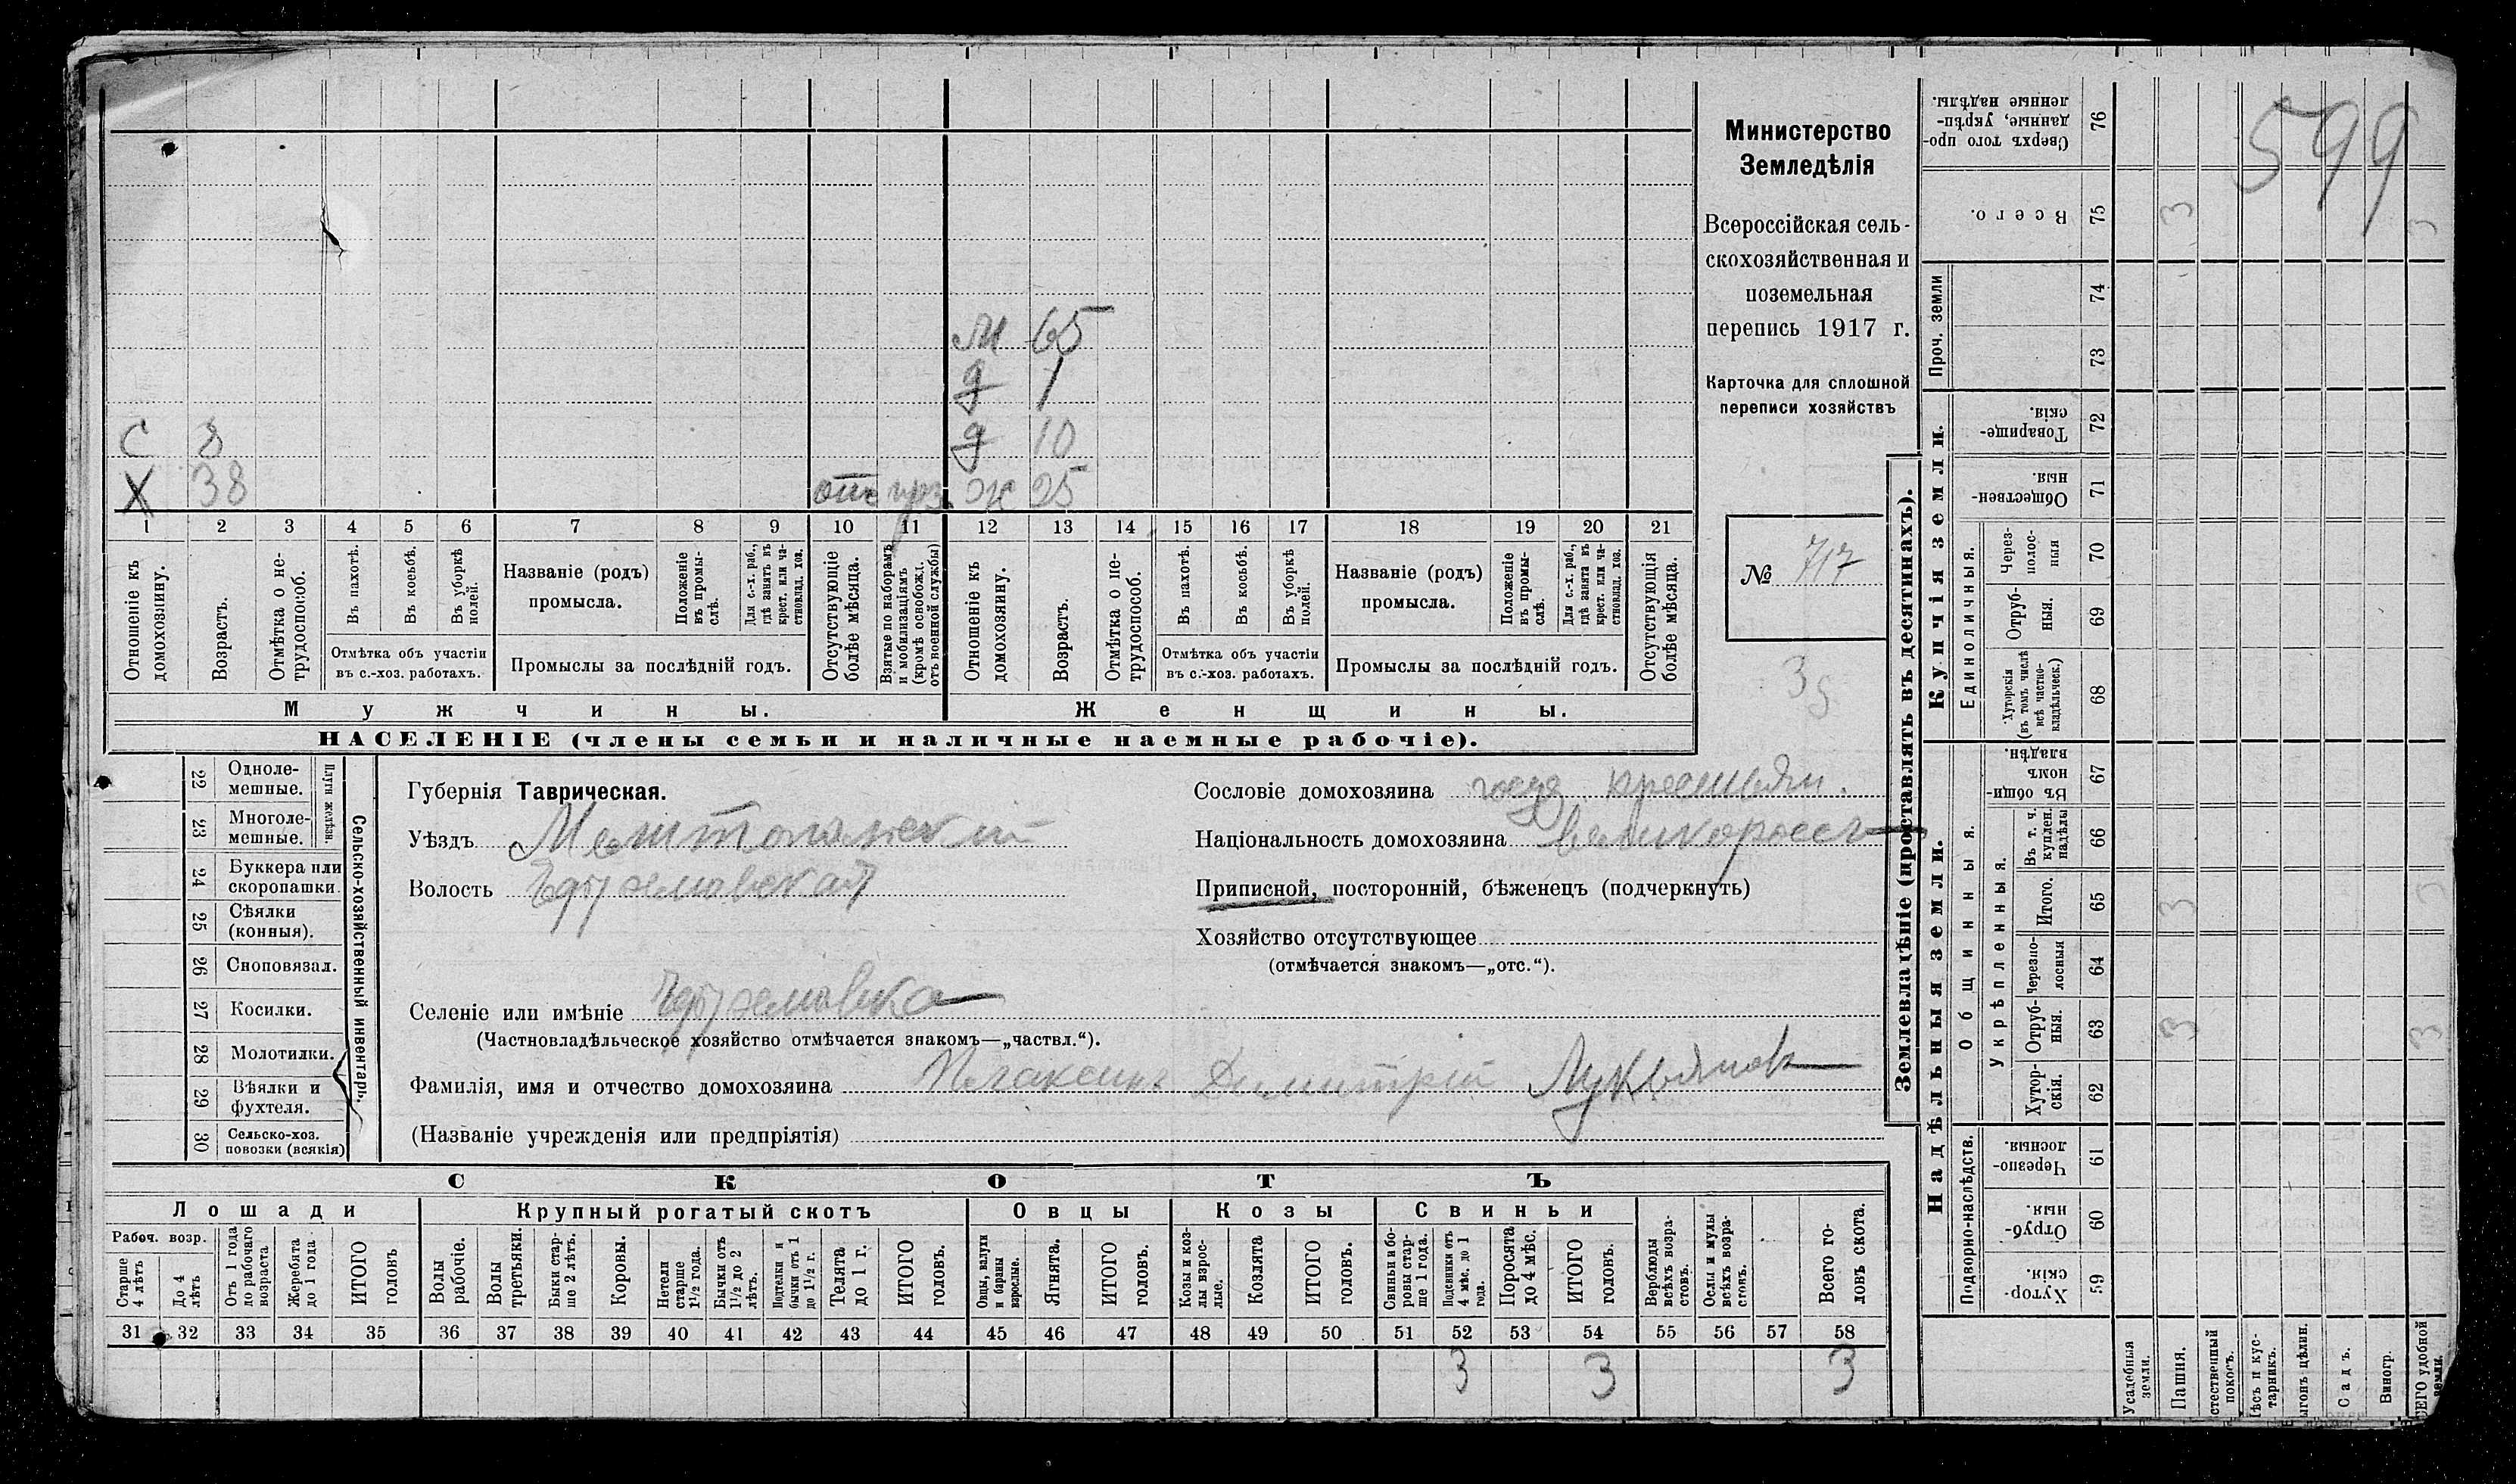 599
Министерство
Земледѣлія
Всероссійская сель-
скохозяйственная и
поземельная
перепись 1917 г.
Карточка для сплошной
переписи хозяйствъ
№ 717
М 65
д 1
С 8 д 10
Х 38 отс Ж 25
1 2 3 4 5 6 7 8 9 10 11 12 13 14 15 16 17 18 19 20 21
Отношеніе къ домохозяину.
Возрастъ.
Отмѣтка о не-трудоспособ.
Въ пахотѣ.
Въ косьбѣ.
Въ уборкѣ полей.
Отмѣтка объ участіи
въ с.-хоз. работахъ.
Названіе (родъ)
промысла.
Положеніе въ промы-слѣ.
Для с.-х. раб., гдѣ занятъ въ крест. или ча-стновлад. хоз.
Промыслы за послѣдній годъ.
Отсутствующіе болѣе мѣсяца.
Взятые по наборамъ и мобилизаціямъ (кромѣ освобожд. отъ военной службы)
Отношеніе къ домохозяину.
Возрастъ.
Отмѣтка о не-трудоспособ.
Въ пахотѣ.
Въ косьбѣ.
Въ уборкѣ полей.
Отмѣтка объ участіи
въ с.-хоз. работахъ.
Названіе (родъ)
промысла.
Положеніе въ промы-слѣ.
Для с.-х. раб., гдѣ занята въ крест. или ча-стновлад. хоз.
Промыслы за послѣдній годъ.
Отсутствующія болѣе мѣсяца.
Мужчины. Женщины.
НАСЕЛЕНІЕ (члены семьи и наличные наемные рабочіе).
Сельско-хозяйственный инвентарь.
Плуги желѣзн.
22 Одноле-мешные.
23 Многоле-мешные.
24 Буккера или скоропашки.
25 Сѣялки (конныя).
26 Сноповязал.
27 Косилки.
28 Молотилки.
29 Вѣялки и фухтеля.
30 Сельско-хоз. повозки (всякія)
Губернія Таврическая.
Уѣздъ Мелитопольскій
Волость
Селеніе или имѣніе
(Частновладѣльческое хозяйство отмѣчается знакомъ—„частвл.“).
Фамилія, имя и отчество домохозяина Плаксинъ Димитрій Лукьянов
(Названіе учрежденія или предпріятія)
Сословіе домохозяина госуд крестьян.
Національность домохозяина великороссъ
Приписной, посторонній, бѣженецъ (подчеркнуть)
Хозяйство отсутствующее
(отмѣчается знакомъ—„отс.“).
СКОТЪ
Лошади Крупный рогатый скотъ Овцы Козы Свиньи
Рабоч. возр.
Старше 4 лѣтъ
До 4 лѣтъ
Отъ 1 года до рабочаго возраста
Жеребята до 1 года
ИТОГО головъ
Волы рабочіе.
Волы третьяки.
Быки стар-ше 2 лѣтъ.
Коровы.
Нетели старше 1½ года.
Бычки отъ 1½ до 2 лѣтъ.
Подтелки и бычки отъ 1 до 1½ г.
Телята до 1 г.
ИТОГО головъ.
Овцы, валухи и бараны взрослые.
Ягнята.
ИТОГО головъ.
Козы и коз-лы взрос-лые.
Козлята
ИТОГО головъ.
Свиньи и бо-ровы стар-ше 1 года.
Подсвинки отъ 4 мѣс. до 1 года.
Поросята до 4 мѣс.
ИТОГО головъ.
Верблюды всѣхъ возра-стовъ.
Ослы и мулы всѣхъ возра-стовъ.
Всего го-ловъ скота.
31 32 33 34 35 36 37 38 39 40 41 42 43 44 45 46 47 48 49 50 51 52 53 54 55 56 57 58
3 3 3
Землевладѣніе (проставлять въ десятинахъ).
Надѣльныя земли. Купчія земли.
Подворно-наслѣдств.
Общинныя.
Укрѣпленныя.
Единоличныя.
Проч. земли
Хутор-скія. 59
Отруб-ныя. 60
Черезпо-лосныя 61
Хутор-скія. 62
Отруб-ныя. 63 3 3
Черезпо-лосныя 64
Итого. 65 3 3
Въ т. ч. куплен. надѣлы 66
Въ общи-номъ владѣн. 67
Хуторскія (въ томъ числѣ всѣ частно-владѣльческ.) 68
Отруб-ныя. 69
Через-полос-ныя 70
Обществен-ныя. 71
Товарище-скія. 72
73
74
Всего. 75 3 3
Сверхъ того про-данные, укрѣп-ленные надѣлы. 76
Усадебныя земли.
Пашня.
стественный покосъ.
Лѣсъ и кус-тарникъ.
ыгонъ цѣлин.
Садъ.
Виногр.
СЕГО удобной земли.